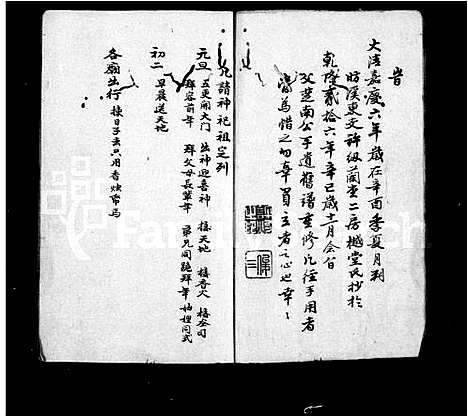 昔
大清嘉慶六年歲在辛酉季夏月刊
時溪東文許級蘭堂二房樾堂氏抄於
乾隆貳拾六年辛巳歲十月會自
父楚南公手遺舊譜重修凡經手用者
為惜之勿辜負主者之心也幸〻
凡請神祀祖定列
元旦 五更開大門 出神迎喜神 接天地 接香火 接灶司
拜容前年 拜父母長輩年 弟兄同跪拜年 妯娌同式
初二 早晨送天地
各廟出行 揀日子去只用香燭帛馬
FamilySearch